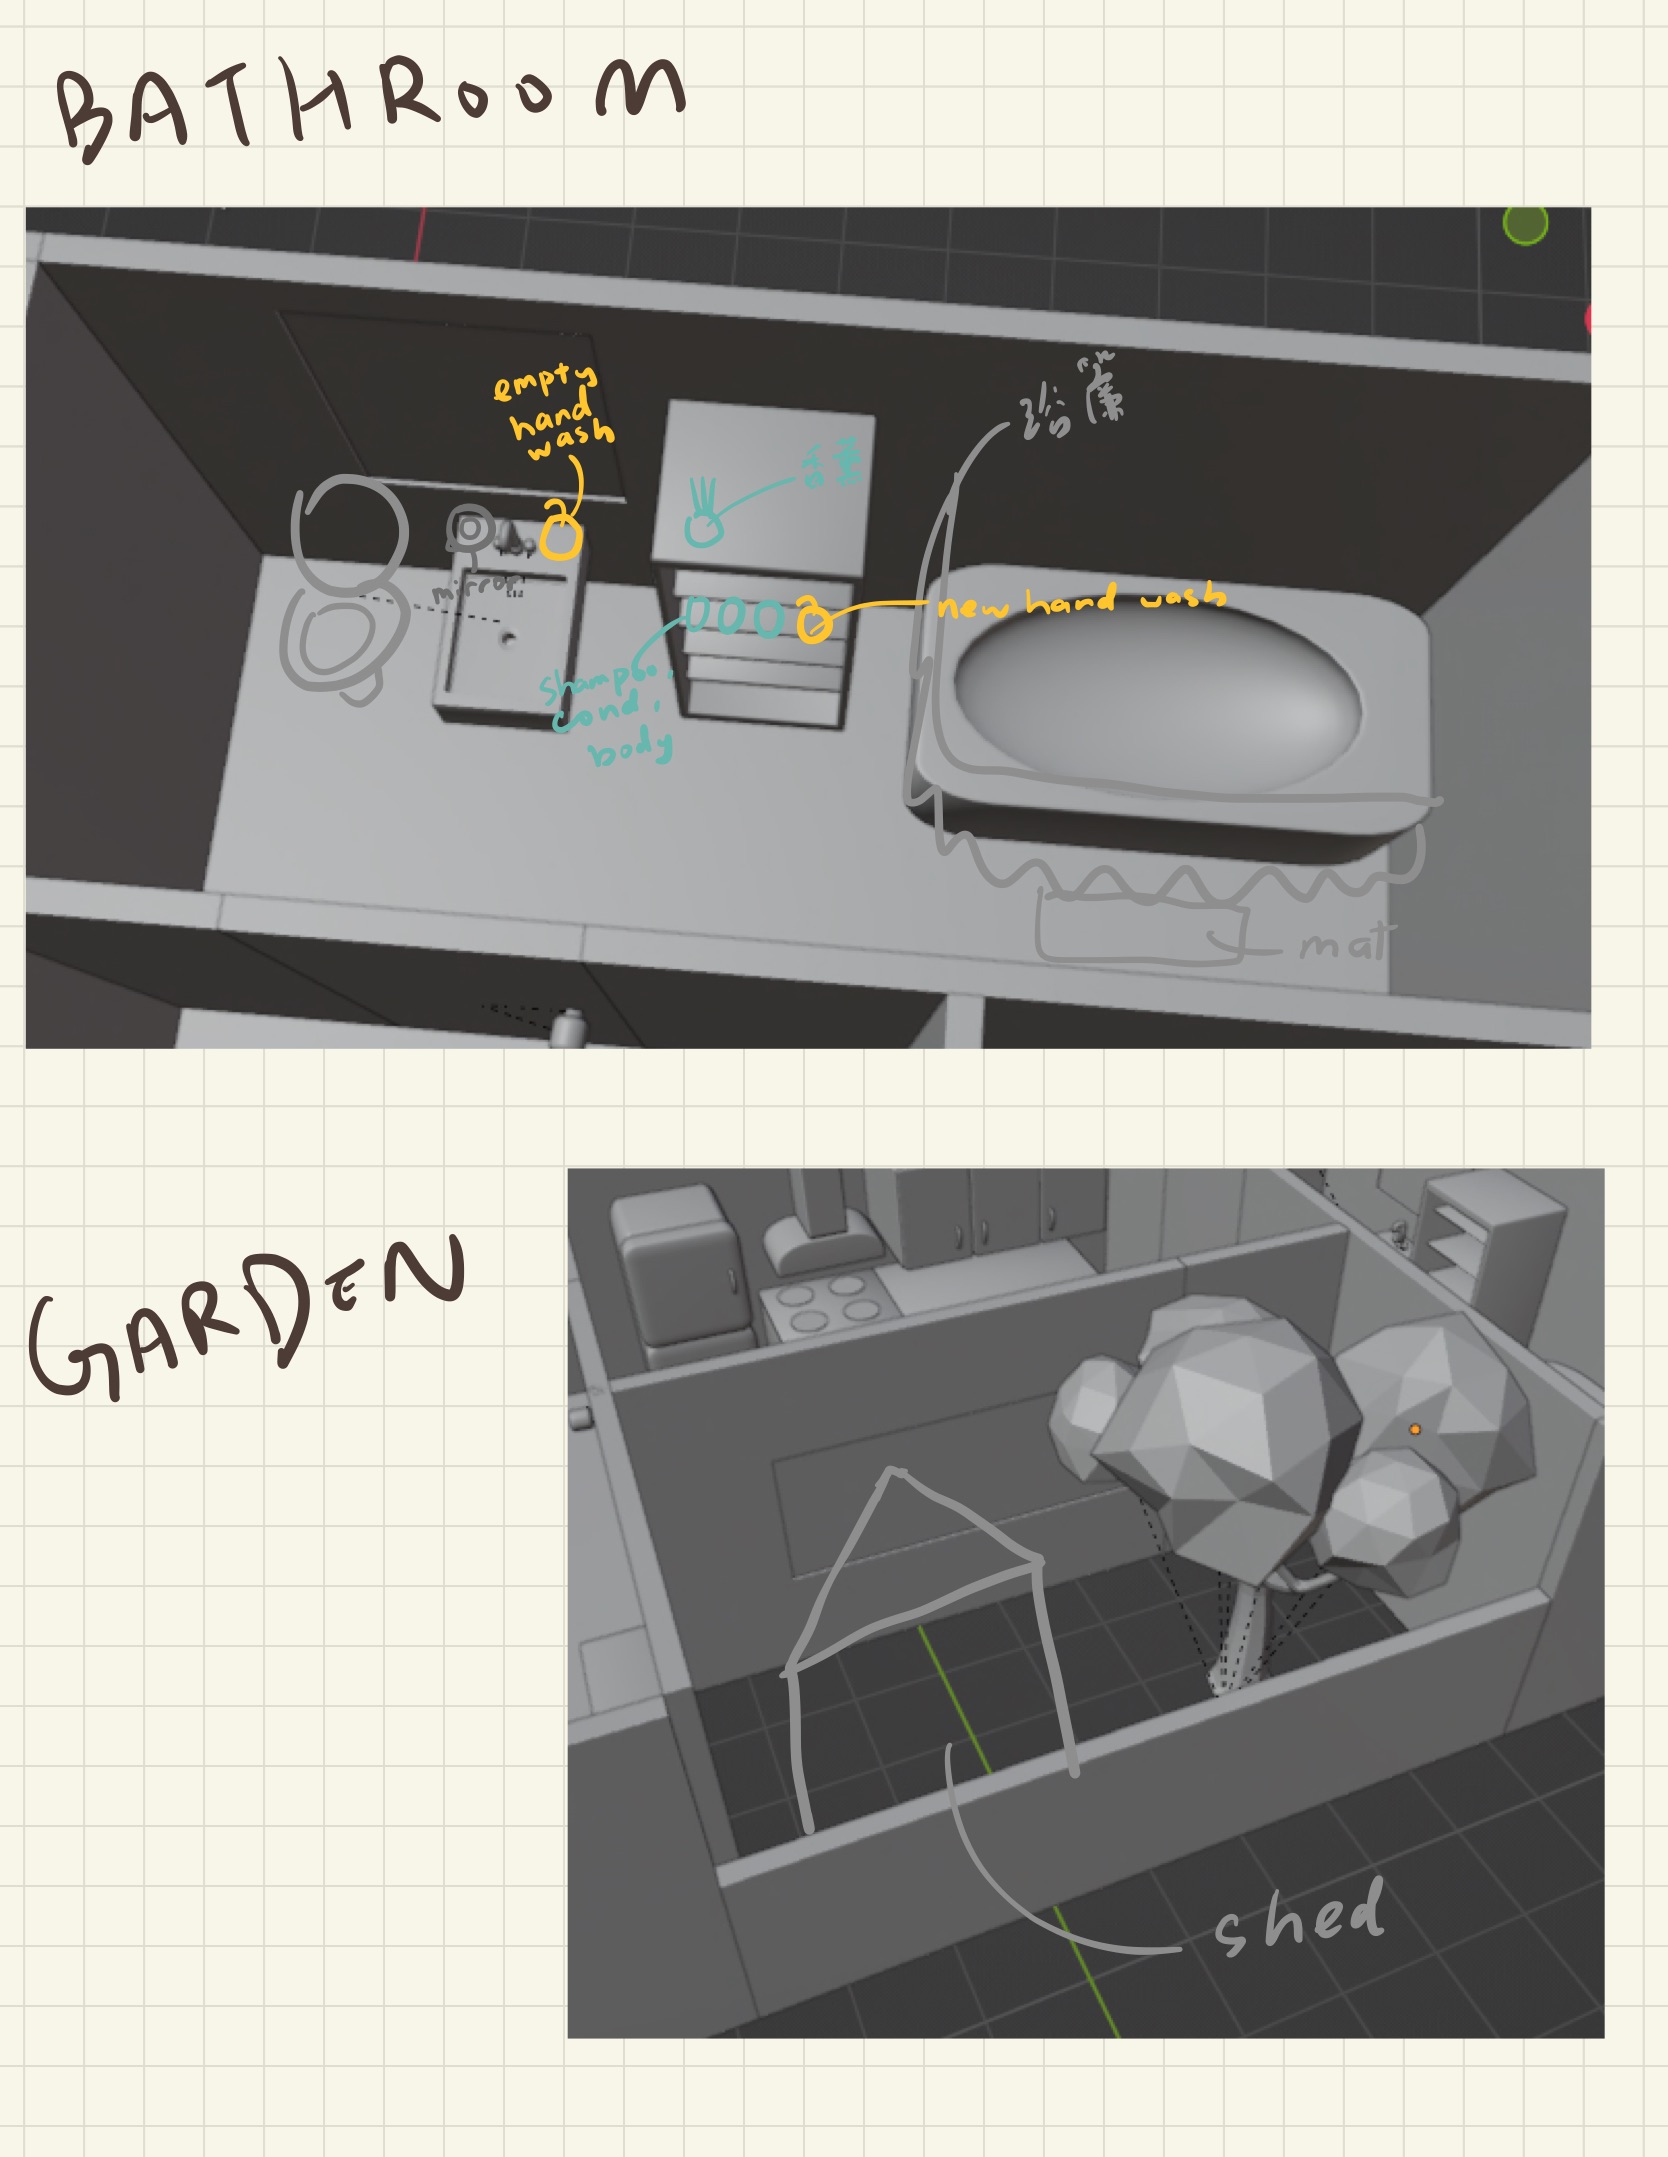 BATHROOM
empty
hand
wash
浴簾
mirror
new hand wash
shampoo,
cond,
body
mat
GARDEN
shed